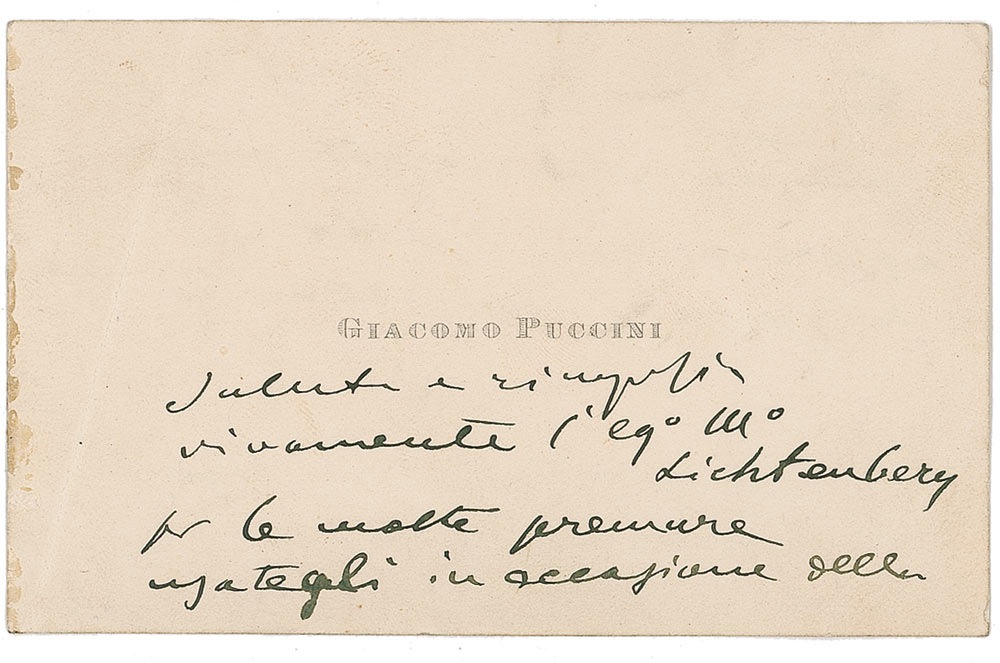 GIACOMO PUCCINI
saluta e ringrazia
vivamente l'egº Mº
Lichtenberg
pr le molte premure
usategli in occasione della